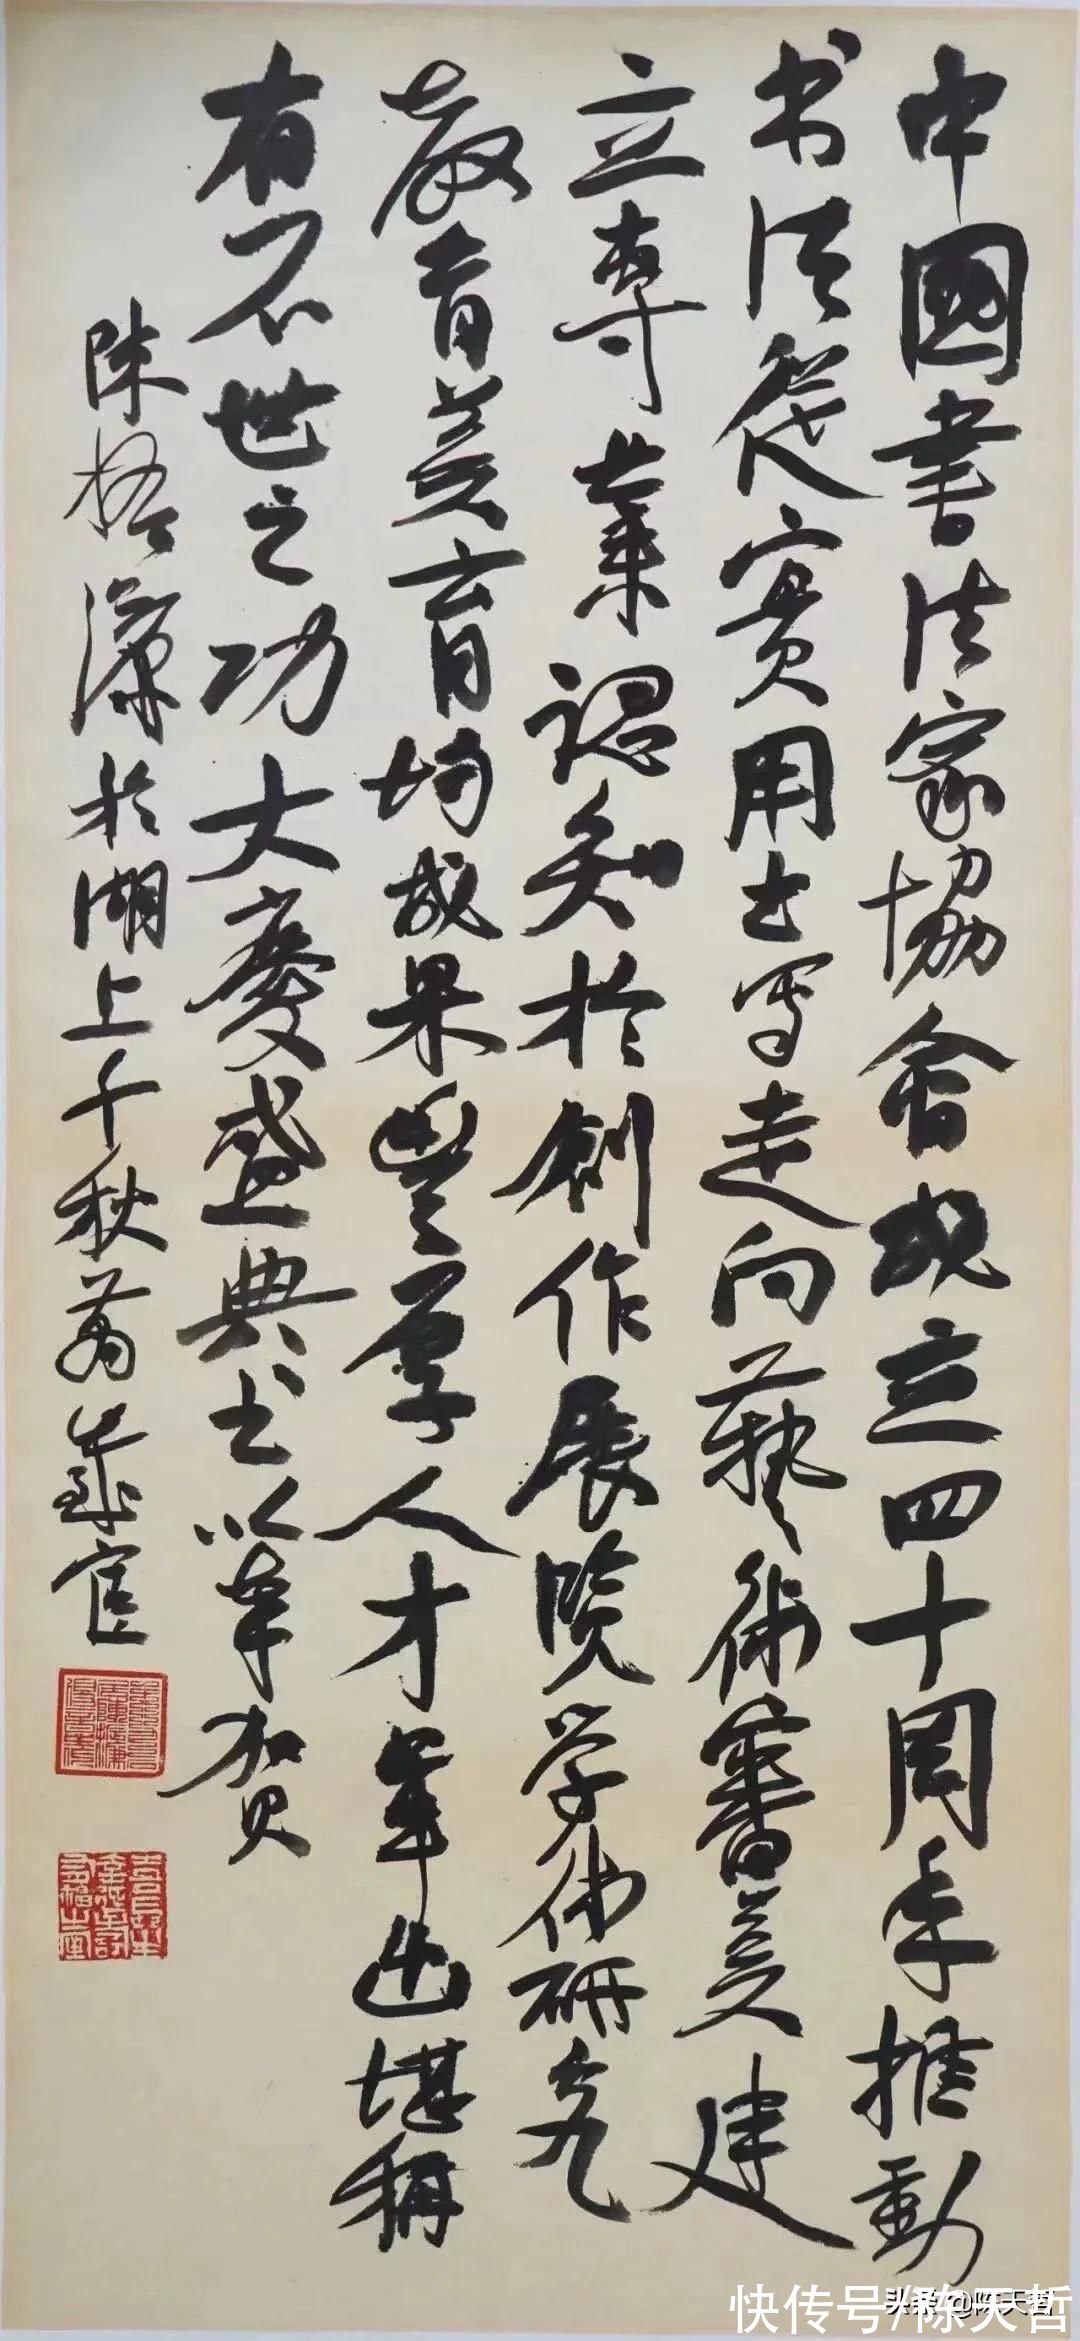 中國書法家協會成立四十周年推動
书法從實用书写走向藝術審美建
立專業認知於創作展览学術研究
教育美育均成果豐厚人才輩出堪稱
有不世之功大慶盛典书以奉賀
陳振濂於湖上千秋萬歲宧
头条@陈天哲
快传号/陈天哲